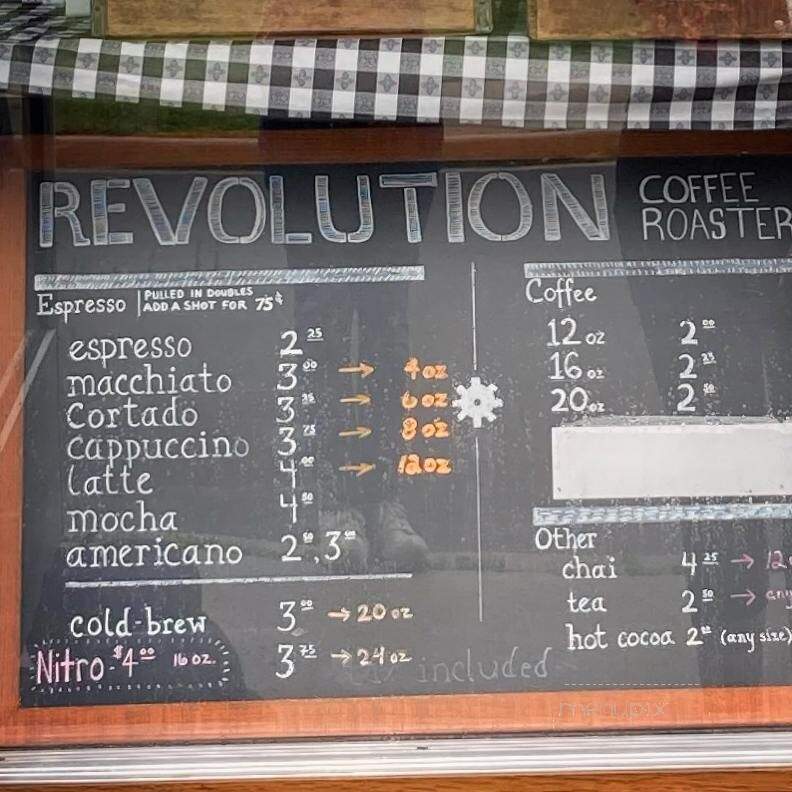 REVOLUTION COFFEE
ROASTER
Espresso | PULLED IN DOUBLES
ADD A SHOT FOR 75¢
espresso 2 25
macchiato 3 00 → 4oz
Cortado 3 25 → 6oz
cappuccino 3 75 → 8oz
latte 4 00 → 12oz
mocha 4 50
americano 2 50, 3 00
cold-brew 3 00 → 20 oz
3 75 → 24 oz
Nitro - $4 00 16 oz.
included
Coffee
12 oz 2 00
16 oz 2 25
20 oz 2 50
Other
chai 4 25 → 12
tea 2 50 → any
hot cocoa 2 (any size)
menupix